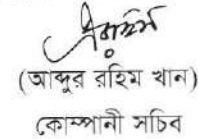 (আব্দুর রহিম খান)
কোম্পানী সচিব